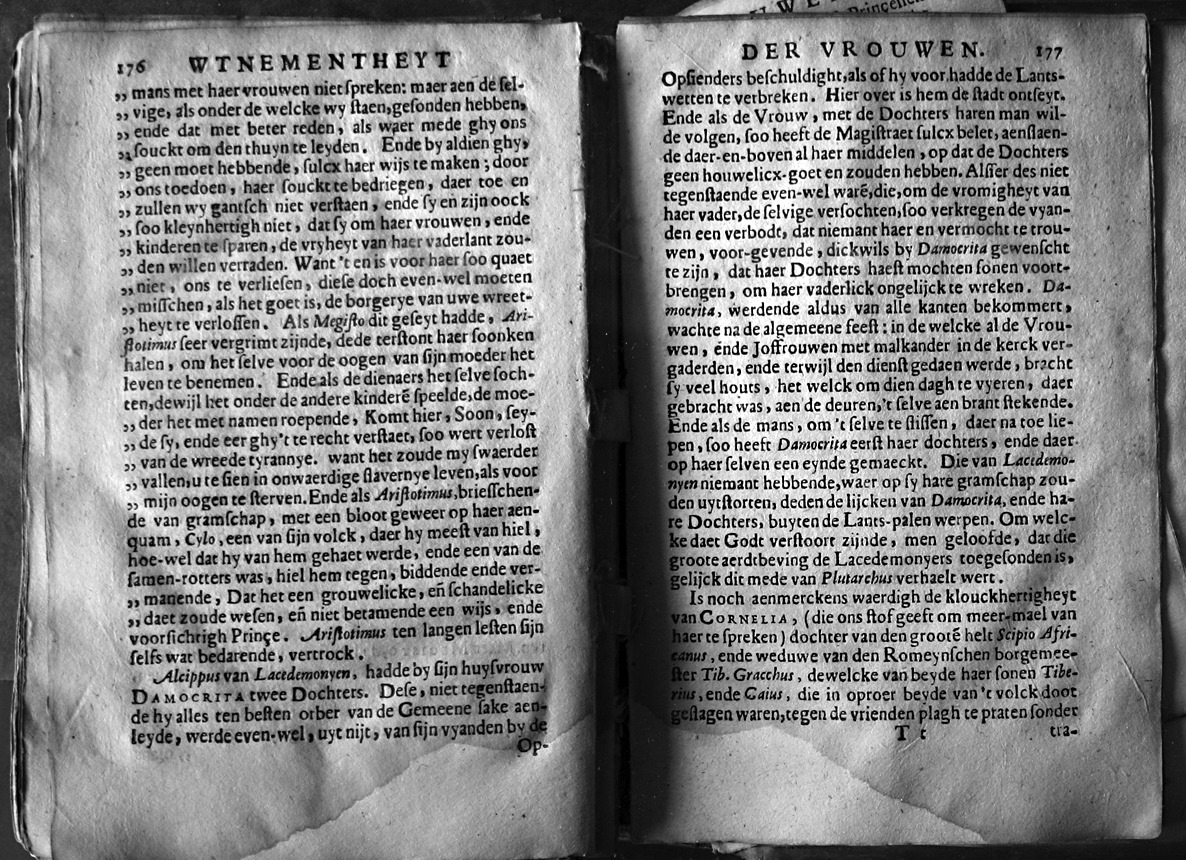 UWE
Prinçellen
176 WTNEMENTHEYT
„ mans met haer vrouwen niet ſpreken: maer aen de ſel-
„ vige, als onder de welcke wy ſtaen, geſonden hebben,
„ ende dat met beter reden, als waer mede ghy ons
„ ſouckt om den thuyn te leyden. Ende by aldien ghy,
„ geen moet hebbende, ſulcx haer wijs te maken; door
„ ons toedoen, haer ſouckt te bedriegen, daer toe en
„ zullen wy gantſch niet verſtaen, ende ſy en zijn oock
„ ſoo kleynhertigh niet, dat ſy om haer vrouwen, ende
„ kinderen te ſparen, de vryheyt van haer vaderlant zou-
„ den willen verraden. Want 't en is voor haer ſoo quaet
„ niet, ons te verlieſen, dieſe doch even-wel moeten
„ miſſchen, als het goet is, de borgerye van uwe wreet-
„ heyt te verloſſen. Als Megiſto dit geſeyt hadde, Ari-
ſtotimus ſeer vergrimt zijnde, dede terſtont haer ſoonken
halen, om het ſelve voor de oogen van ſijn moeder het
leven te benemen. Ende als de dienaers het ſelve ſoch-
ten, dewijl het onder de andere kinderē ſpeelde, de moe-
„ der het met namen roepende, Komt hier, Soon, ſey-
„ de ſy, ende eer ghy't te recht verſtaet, ſoo wert verloſt
„ van de wreede tyrannye. want het zoude my ſwaerder
„ vallen, u te ſien in onwaerdige ſlavernye leven, als voor
„ mijn oogen te ſterven. Ende als Ariſtotimus, brieſſchen-
de van gramſchap, met een bloot geweer op haer aen-
quam, Cylo, een van ſijn volck, daer hy meeſt van hiel,
hoe-wel dat hy van hem gehaet werde, ende een van de
ſamen-rotters was, hiel hem tegen, biddende ende ver-
„ manende, Dat het een grouwelicke, en̄ ſchandelicke
„ daet zoude weſen, en̄ niet betamende een wijs, ende
voorſichtigh Prinçe. Ariſtotimus ten langen leſten ſijn
ſelfs wat bedarende, vertrock.
Alcippus van Lacedemonyen, hadde by ſijn huyſvrouw
DAMOCRITA twee Dochters. Deſe, niet tegenſtaen-
de hy alles ten beſten orber van de Gemeene ſake aen-
leyde, werde even-wel, uyt nijt, van ſijn vyanden by de
Op-
DER VROUWEN. 177
Opſienders beſchuldight, als of hy voor hadde de Lants-
wetten te verbreken. Hier over is hem de ſtadt ontſeyt.
Ende als de Vrouw, met de Dochters haren man wil-
de volgen, ſoo heeft de Magiſtraet ſulcx belet, aenſlaen-
de daer-en-boven al haer middelen, op dat de Dochters
geen houwelicx-goet en zouden hebben. Alſſer des niet
tegenſtaende even-wel warē, die, om de vromigheyt van
haer vader, de ſelvige verſochten, ſoo verkregen de vyan-
den een verbodt, dat niemant haer en vermocht te trou-
wen, voor-gevende, dickwils by Damocrita gewenſcht
te zijn, dat haer Dochters haeſt mochten ſonen voort-
brengen, om haer vaderlick ongelijck te wreken. Da-
mocrita, werdende aldus van alle kanten bekommert,
wachte na de algemeene feeſt; in de welcke al de Vrou-
wen, ende Joffrouwen met malkander in de kerck ver-
gaderden, ende terwijl den dienſt gedaen werde, bracht
ſy veel houts, het welck om dien dagh te vyeren, daer
gebracht was, aen de deuren, 't ſelve aen brant ſtekende.
Ende als de mans, om 't ſelve te ſliſſen, daer na toe lie-
pen, ſoo heeft Damocrita eerſt haer dochters, ende daer
op haer ſelven een eynde gemaeckt. Die van Lacedemo-
nyen niemant hebbende, waer op ſy hare gramſchap zou-
den uytſtorten, deden de lijcken van Damocrita, ende ha-
re Dochters, buyten de Lants-palen werpen. Om welc-
ke daet Godt verſtoort zijnde, men gelooſde, dat die
groote aerdtbeving de Lacedemonyers toegeſonden is,
gelijck dit mede van Plutarchus verhaelt wert.
Is noch aenmerckens waerdigh de klouckhertigheyt
van CORNELIA, (die ons ſtof geeft om meer-mael van
haer te ſpreken) dochter van den grootē helt Scipio Afri-
canus, ende weduwe van den Romeynſchen borgemee-
ſter Tib. Gracchus, dewelcke van beyde haer ſonen Tibe-
rius, ende Caius, die in oproer beyde van 't volck doot
geſlagen waren, tegen de vrienden plagh te praten ſonder
T t tra-